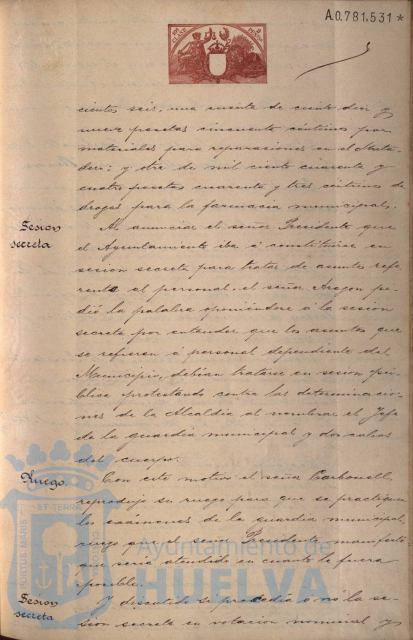 A.0.781.531*
cientos seis, una cuenta de ciento diez y
nueve pesetas cincuenta céntimos por
materiales para reparaciones en el Mata-
dero; y otra de mil ciento cuarenta y
cuatro pesetas cuarenta y tres céntimos de
drogas para la farmacia municipal.
Sesion
secreta
Al anunciar el señor Presidente que
el Ayuntamiento iba á constituirse en
sesion secreta para tratar de asuntos refe
rentes al personal, el señor Aragon pi-
dió la palabra oponiéndose á la sesión
secreta por entender que los asuntos que
se refieran á personal dependiente del
Municipio, debian tratarse en sesion pú-
blica protestando contra las determinacio-
nes de la Alcaldia al nombrar el Jefe
de la guardia municipal y dos cabos
del cuerpo.
Ruego.
Con este motivo el señor Carbonell,
reprodujo su ruego para que se practiquen
los exámenes de la guardia municipal,
ruego que el señor Presidente manifestó
que seria atendido en cuanto le fuera
posible.
Sesion
secreta
Y discutido si procedia ó no la se-
sion secreta en votacion nominal y
Ayuntamiento de
HUELVA
PORTUS MARIS
ET TERRAE